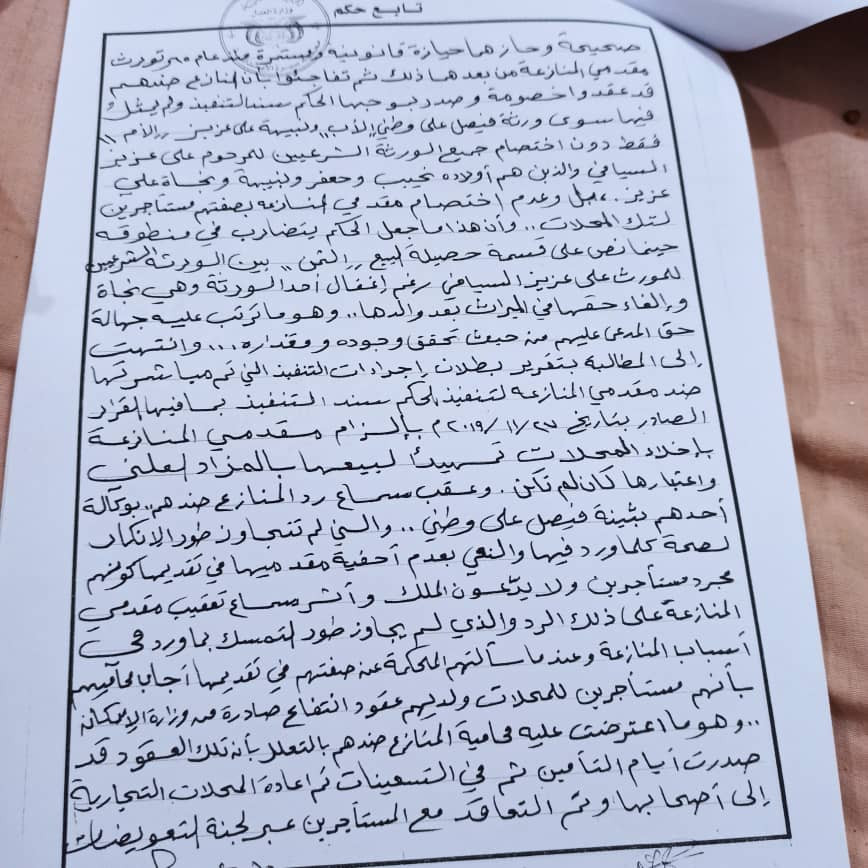 تابع حكم
صحيحة وحازهما حيازة قانونية ومستمرة منذ عام مورث
مقدمي المنازعة من بعدهما ذلك ثم تفاجئوا بأن المنازع ضدهم
قد عقدوا خصومة وصدر بموجبها الحكم سند التنفيذ ولم يمثل
فيها سوى ورثة فيصل علي وطني "الأب" ولبيبة علي عزيز "الأم"
فقط دون اختصام جميع الورثة الشرعيين للمرحوم علي عزيز
السيافي والذين هم أولاده نجيب وجعفر ولبيبة ونجاة علي
عزيز. وعدم اختصام مقدمي المنازعة بصفتهم مستأجرين
لتلك المحلات.. وأن هذا ما جعل الحكم يتضارب في منطوقه
حينما نص على قسمة حصيلة البيع "الثمن" بين الورثة الشرعيين
للمورث علي عزيز السيافي رغم إغفال أحد الورثة وهي نجاة
وإلغاء حقها في الميراث بعد والدها.. وهو ما ترتب عليه جهالة
حق المدعى عليهم من حيث تحقق وجوده ومقداره... وانتهت
إلى المطالبة بتقرير بطلان إجراءات التنفيذ التي تم مباشرتها
ضد مقدمي المنازعة لتنفيذ الحكم سند التنفيذ بما فيها القرار
الصادر بتاريخ ٢٠١٩/١١/٢٧م بإلزام مقدمي المنازعة
بإخلاء المحلات تمهيدًا لبيعها بالمزاد العلني
واعتبارها كأن لم تكن. وعقب سماع رد المنازع ضدهم.. بوكالة
أحدهم بثينة فيصل علي وطني.. والتي لم تتجاوز طور الإنكار
لصحة كلما ورد فيها والنعي بعدم أحقية مقدميها في تقديمها كونهم
مجرد مستأجرين ولا يدّعون الملك وأثر سماع تعقيب مقدمي
المنازعة على ذلك الرد والذي لم يجاوز طور التمسك بما ورد في
أسباب المنازعة وعندما سألتهم المحكمة عن صفتهم في تقديمها أجاب محاميهم
بأنهم مستأجرين للمحلات ولديهم عقود انتفاع صادرة من وزارة الإسكان
.. وهو ما اعترضت عليه محامية المنازع ضدهم بالتعلل بأن تلك العقود قد
صدرت أيام التأمين ثم في التسعينات تم إعادة المحلات التجارية
إلى أصحابها وتم التعاقد مع المستأجرين عبر لجنة التعويضات